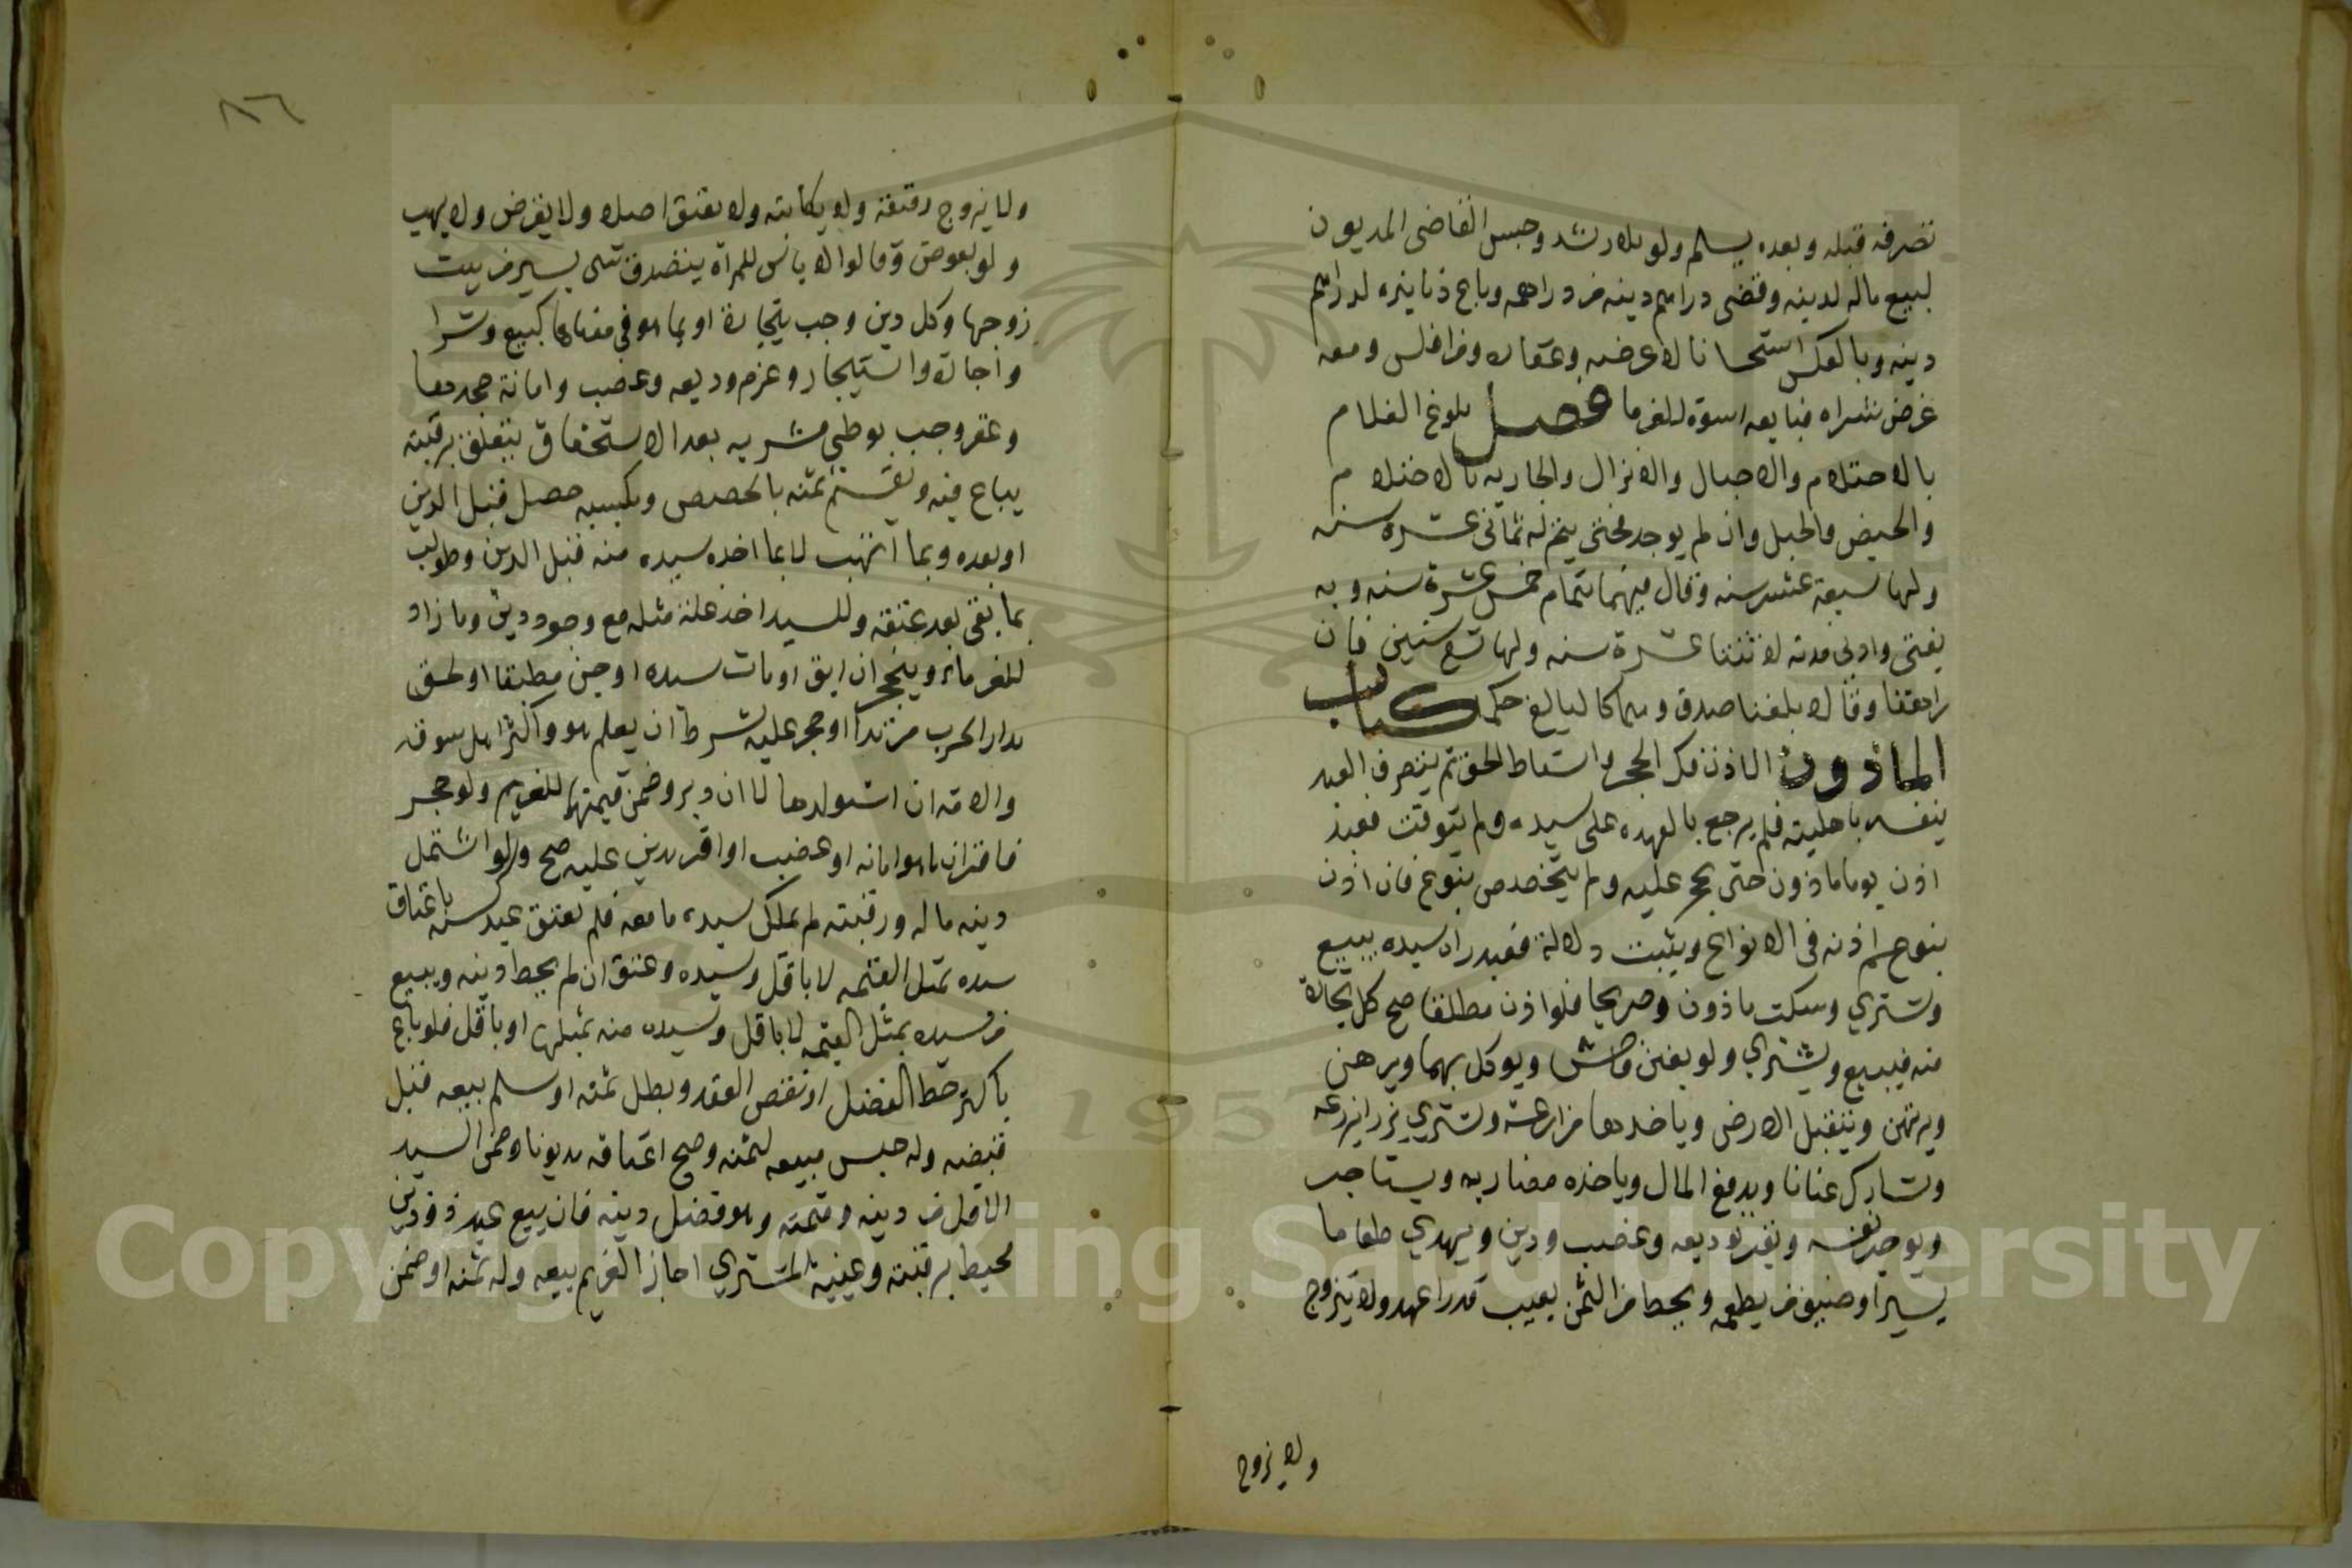 تصرفه قبله وبعده يسلم ولو بلا رشد وحبس القاضى المديون
لبيع ماله لدينه وقضى دراهم دينه من دراهمه وباع دنانيره لدراهم
دينه وبالعكس استحسانا لا عرضه وعقاره ومن افلس ومعه
عرض شراه فبايعه اسوة للغرما فصل بلوغ الغلام
بالاحتلام والاحبال والانزال والجاريه بالاحتلام
والحيض والحبل وان لم يوجد فحتى يتم له ثمانى عشرة سنه
ولها سبعة عشر سنه وقال فيهما بتمام خمس عشرة سنه وبه
يفتى وادنى مدته له اثنتا عشرة سنه ولها تسع سنين فان
راهقا وقالا بلغنا صدق وهما كالبالغ حكما كتاب
الماذون الاذن فك الحجر واسقاط الحق ثم يتصرف العبد
لنفسه باهليته فلم يرجع بالعهده على سيده ولم يتوقت فعبد
اذن يوما ماذون حتى يحجر عليه ولم يتخصص بنوع فان اذن
بنوع عم اذنه فى الانواع ويثبت دلالة فعبد راه سيده يبيع
ويشتري وسكت ماذون وصريحا فلو اذن مطلقا صح كل تجارة
منه فيبيع ويشتري ولو بغبن فاحش ويوكل بهما ويرهن
ويرتهن ويتقبل الارض وياخذها مزارعة ويشتري بزرا يزرعه
ويشارك عنانا ويدفع المال وياخذه مضاربه ويستاجر
ويوجر نفسه ويقر بوديعه وغصب ودين ويهدي طعاما
يسيرا ويضيف من يطعمه ويحط من الثمن بعيب قدرا عهد ولا يتزوج
ولا يزوج
٨٦
ولا يزوج رقيقه ولا يكاتبه ولا يعتق اصلا ولا يقرض ولا يهب
ولو بعوض وقالوا لا باس للمراة يتصدق بشى يسير من بيت
زوجها وكل دين وجب بتجارة او بما هو فى معناها كبيع وشرا
واجارة واستيجار وغرم وديعه وغصب وامانة جحدها
وعقر وجب بوطي مشريه بعد الاستحقاق يتعلق برقبته
يباع فيه ويقسم ثمنه بالحصص وبكسبه حصل قبل الدين
او بعده وبما اتهب لا بما اخذه سيده منه قبل الدين وطولب
بما بقى بعد عتقه وللسيد اخذ غلة مثله مع وجود دين وما زاد
للغرماء وينحجر ان ابق او مات سيده او جن مطبقا او لحق
بدار الحرب مرتدا او حجر عليه بشرط ان يعلم هو واكثر اهل سوقه
والامة ان استولدها لا ان دبر وضمن قيمتهما للغريم ولو حجر
فاقر ان ما معه امانه او غصب او اقر بدين عليه صح ولو اشتمل
دينه ماله ورقبته لم يملك سيده ما معه فلم يعتق عبد كسبه باعتاق
سيده بمثل القيمه لا باقل وسيده وعتق ان لم يحط دينه ويبيع
من سيده بمثل القيمه لا باقل وسيده منه بمثلها او باقل فلو باع
باكثر حط الفضل او نقض العقد وبطل ثمنه لو سلم بيعه قبل
قبضه وله حبس مبيعه لثمنه وصح اعتاقه مديونا وضمن السيد
الاقل من دينه وقيمته وهو فضل دينه فان بيع عبد ذو دين
محيط برقبته وغيبه المشتري اجاز الغريم بيعه وله ثمنه او ضمن
Copyright © King Saud University
1957